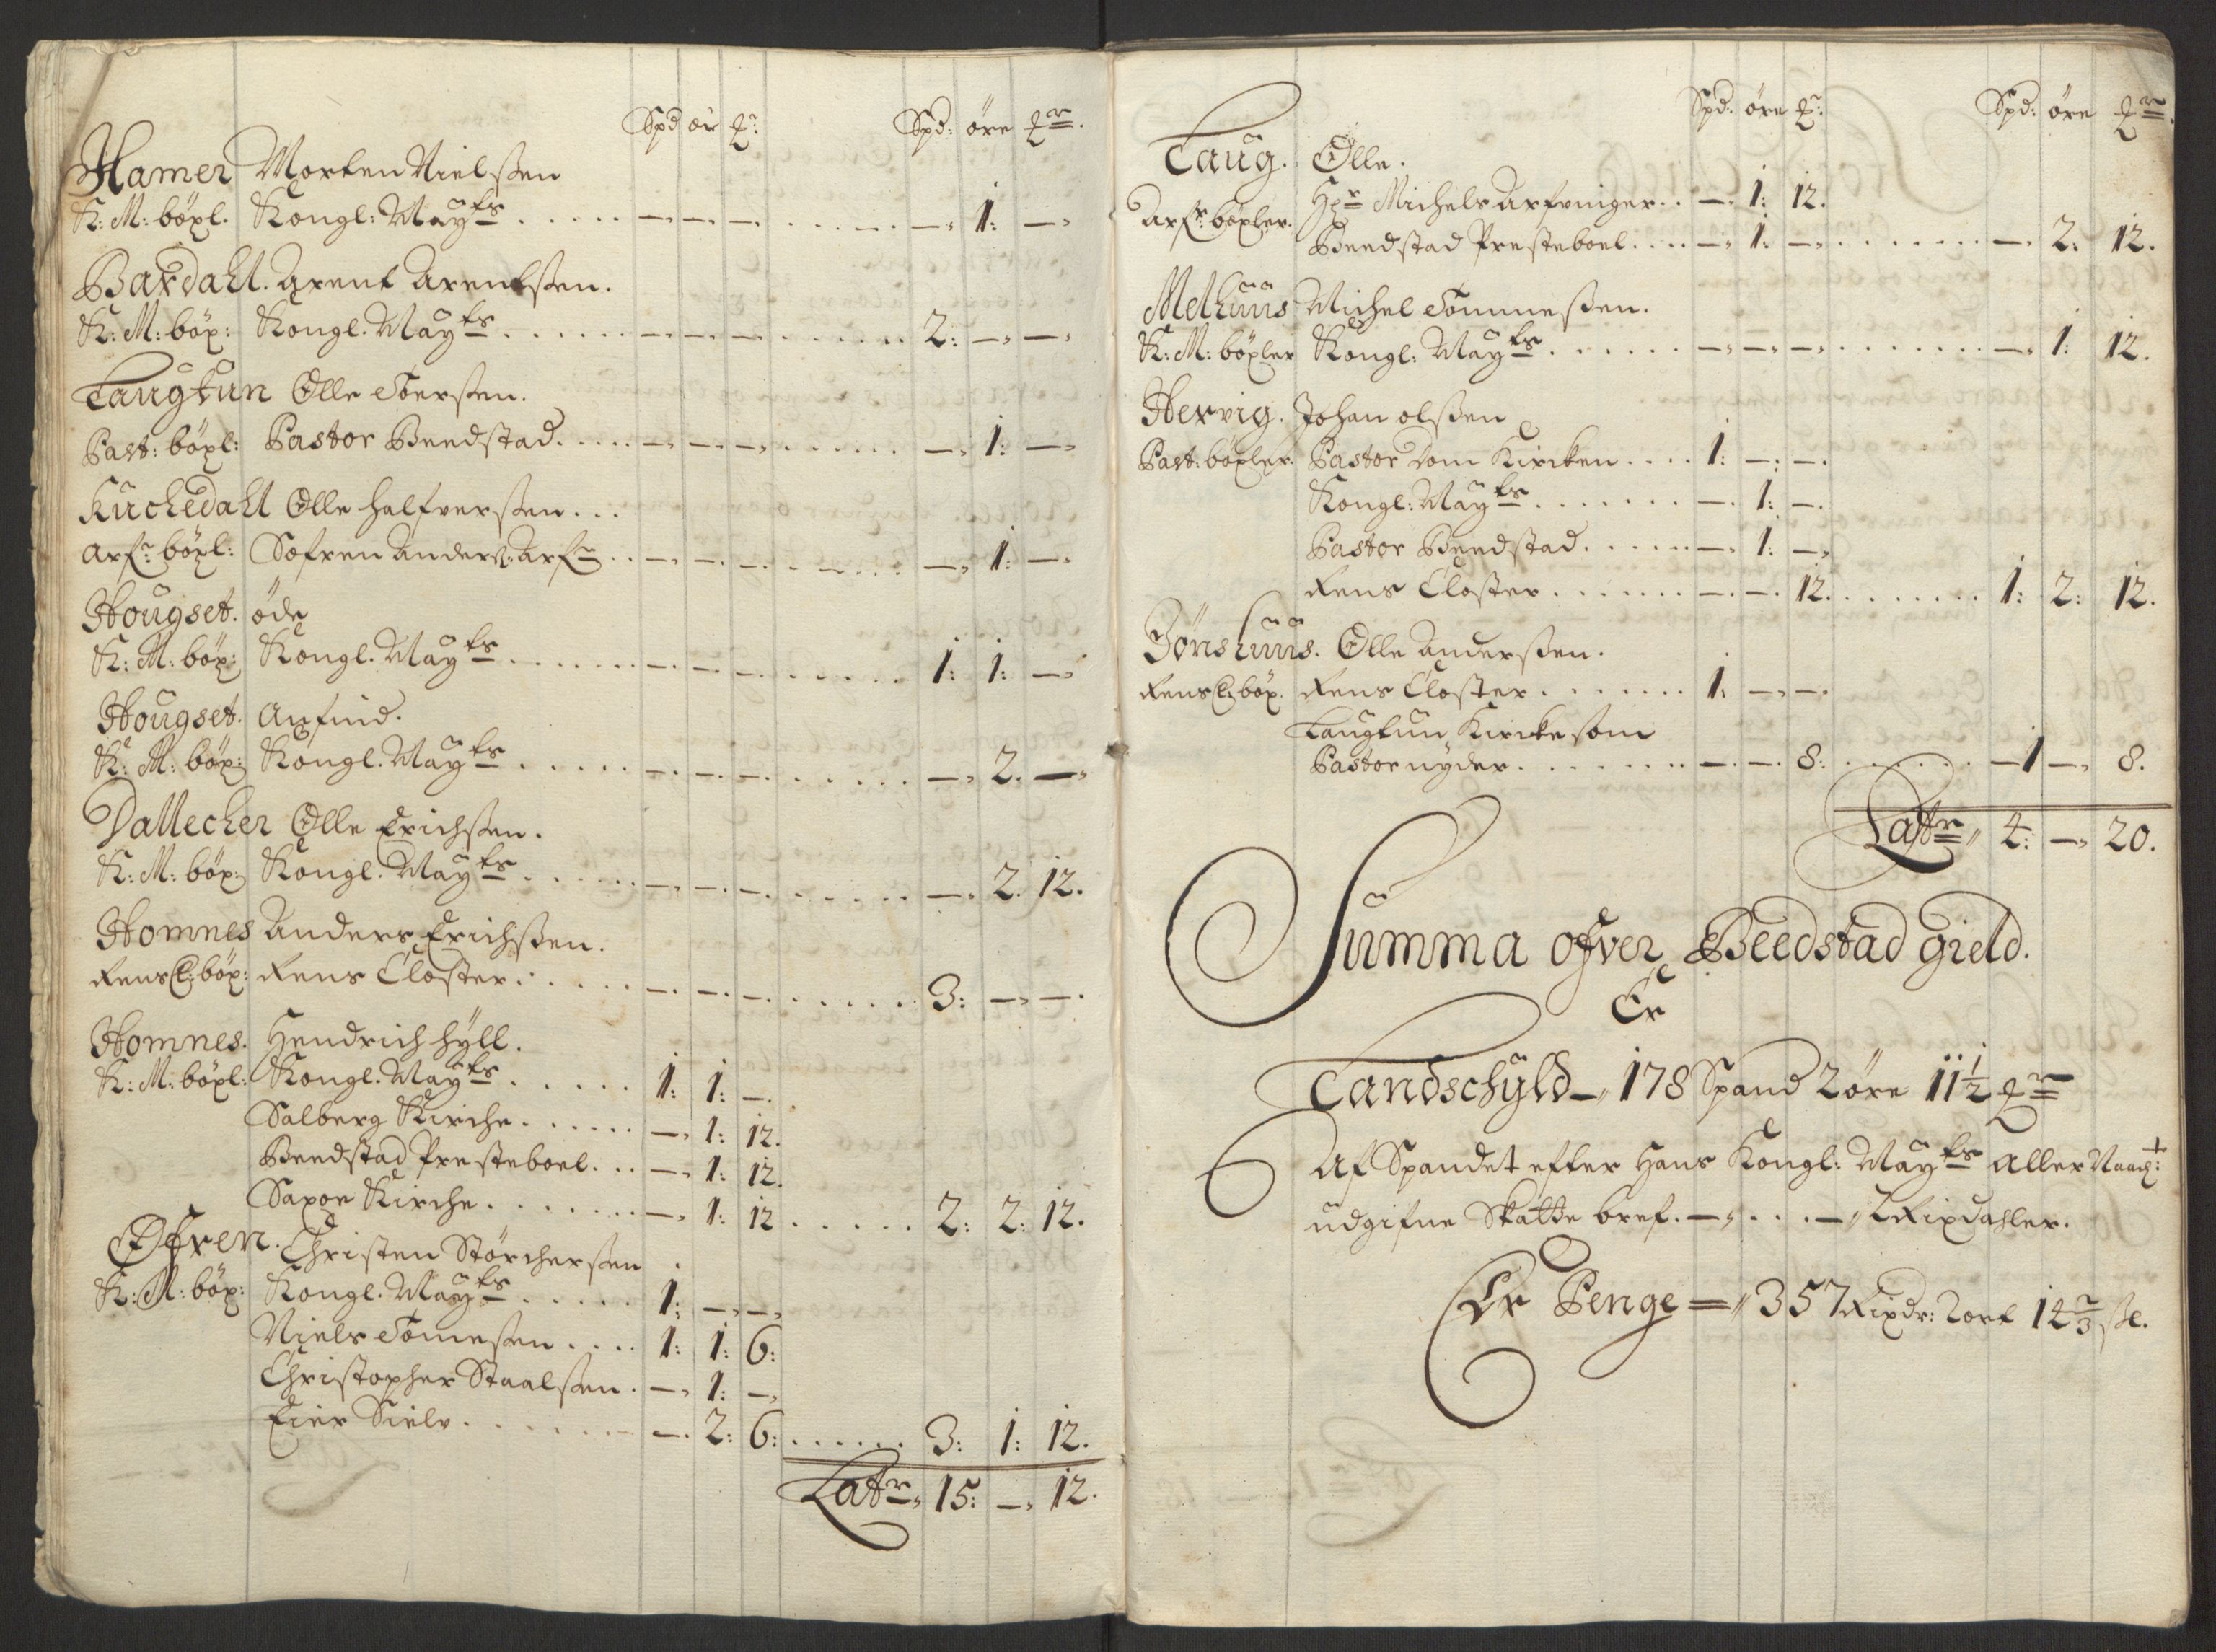 Spd ör ꝑr: Spd: öre ꝑr.
Hamer Morten Nielssen
K: M: böxl. Kongl: Mayts . . . . . —, —, — . . . . . —, 1: —,
Bardahl. Arent Arentssen.
K: M: böx: Kongl. Mayts . . . . . —, —, — . . . . . 2: —, —,
Laugtun Olle Toerssen.
Past: böxl: Pastor Beedstad . . . . —, —, — . . . . . —, 1: —,
Kirchedahl Olle Halfverssen . . .
Arf: böxl: Sofren Anderss: Arfr . . —, —. — . . . . . —, 1: —,
Hougset. öde
K: M: böx: Kongl. Mayts . . . . . —. —. — . . . . . 1: 1: —,
Hougset. Anfind.
K: M: böx: Kongl. Mayts . . . . . —. —. — . . . . . —, 2. —,
Dallecher Olle Erichssen.
K: M: böx: Kongl. Mayts . . . . . —, —. — . . . . . —, 2. 12.
Homnes Anders Erichssen.
Rens Cl: böx: Rens Closter . . . . . —. —. — . . . . . 3: —, —.
Homnes. Hendrich Hyll.
K: M: böxl: Kongl. Mayts . . . . . 1: 1: —.
Salberg Kirche . . . . . —, 1: 12.
Beedstad Presteboel . . . —, 1: 12.
Saxoe Kirche . . . . . —, 1: 12 . . . . . 2: 2: 12.
Ofren. Christen Störcherssen
K: M: böx: Kongl. Mayts . . . . . 1: —, —,
Niels Tomessen . . . . 1: 1: 6:
Christopher Staalssen . —, 1: —,
Eier Sielv . . . . . —. 2: 6: . . . . . 3: 1: 12.
Latr, 15: —, 12.
Spd: öre ꝑr: Spd: öre ꝑr.
Laug. Olle.
Arfr: böxler. Hr Michels Arfvinger . . —. 1: 12.
Beedstad Presteboel . . . . —, 1: — . . . . . —. 2: 12.
Melhuus Michel Tommessen.
K: M: böxler Kongl: Mayts . . . . . —, —, — . . . . . —, 1: 12.
Hervig. Johan olssen
Past: böxler. Pastor Dom Kircken . . . . 1: —. —.
Kongl: Mayts . . . . . —. 1: —.
Pastor Beedstad . . . . . —, 1: —,
Rens Closter . . . . . —. —. 12. . . . . . 1: 2: 12.
Jönshuus. Olle Anderssen.
Rens Cl: böx. Rens Closter . . . . . 1. —, —.
Laugtun Kircke som
Pastor nyder . . . . . —. —. 8: . . . . . — 1 —, 8.
Latr, 4: —, 20.
Summa ofver Beedstad Gield.
Er
Landschyld —, 178 Spand 2 öre 11 1/2 ꝑr
Af Spandet efter Hans Kongl: Mayts Aller Naadt:
udgifne Skatte bref. —, . . . —, 2 Rixdahler.
Er Penge =, 357 Rixdr: 2 ort 14 2/3 ssl.